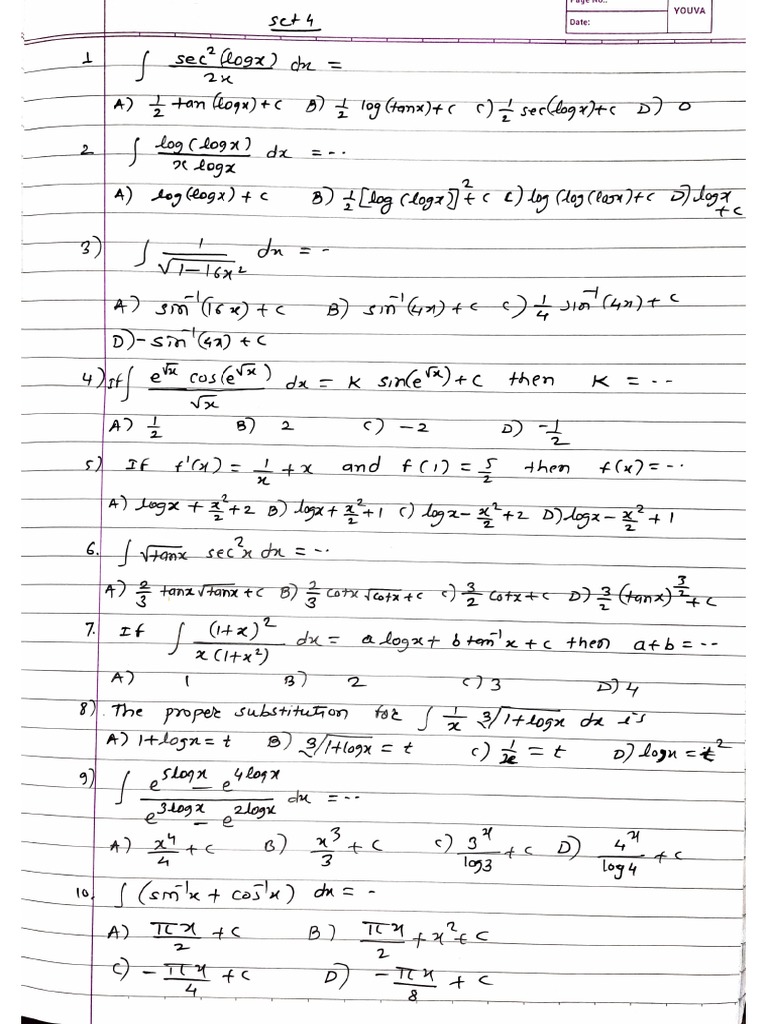 Page No.:
Date:
YOUVA
set 4
1 ∫ sec²(logx)/2x dx =
A) 1/2 tan(logx)+c B) 1/2 log(tanx)+c C) 1/2 sec(logx)+c D) 0
2 ∫ log(logx)/x logx dx = --
A) log(logx) + c B) 1/2 [log(logx)]² + c C) log(log(logx)+c D) logx + c
3) ∫ 1/√1-16x² dx = -
A) sin⁻¹(16x) + c B) sin⁻¹(4x) + c C) 1/4 sin⁻¹(4x) + c
D) - sin⁻¹(4x) + c
4) If ∫ e^√x cos(e^√x)/√x dx = K sin(e^√x)+c then K = --
A) 1/2 B) 2 C) -2 D) -1/2
5) If f'(x) = 1/x + x and f(1) = 5/2 then f(x) = --
A) logx + x²/2 + 2 B) logx + x²/2 + 1 C) logx - x²/2 + 2 D) logx - x²/2 + 1
6. ∫ √tanx sec²x dx = --
A) 2/3 tanx √tanx + c B) 2/3 cotx √cotx + c C) 3/2 cotx + c D) 3/2 (tanx)^3/2 + c
7. If ∫ (1+x)²/x(1+x²) dx = a logx + b tan⁻¹x + c then a+b = --
A) 1 B) 2 C) 3 D) 4
8). The proper substitution for ∫ 1/x ∛1+logx dx is
A) 1+logx = t B) ∛1+logx = t C) 1/x = t D) logx = t²
9) ∫ e^5logx - e^4logx/e^3logx - e^2logx dx = --
A) x⁴/4 + c B) x³/3 + c C) 3^x/log3 + c D) 4^x/log4 + c
10. ∫ (sin⁻¹x + cos⁻¹x) dx = -
A) πx/2 + c B) πx/2 + x² + c
C) - πx/4 + c D) - πx/8 + c